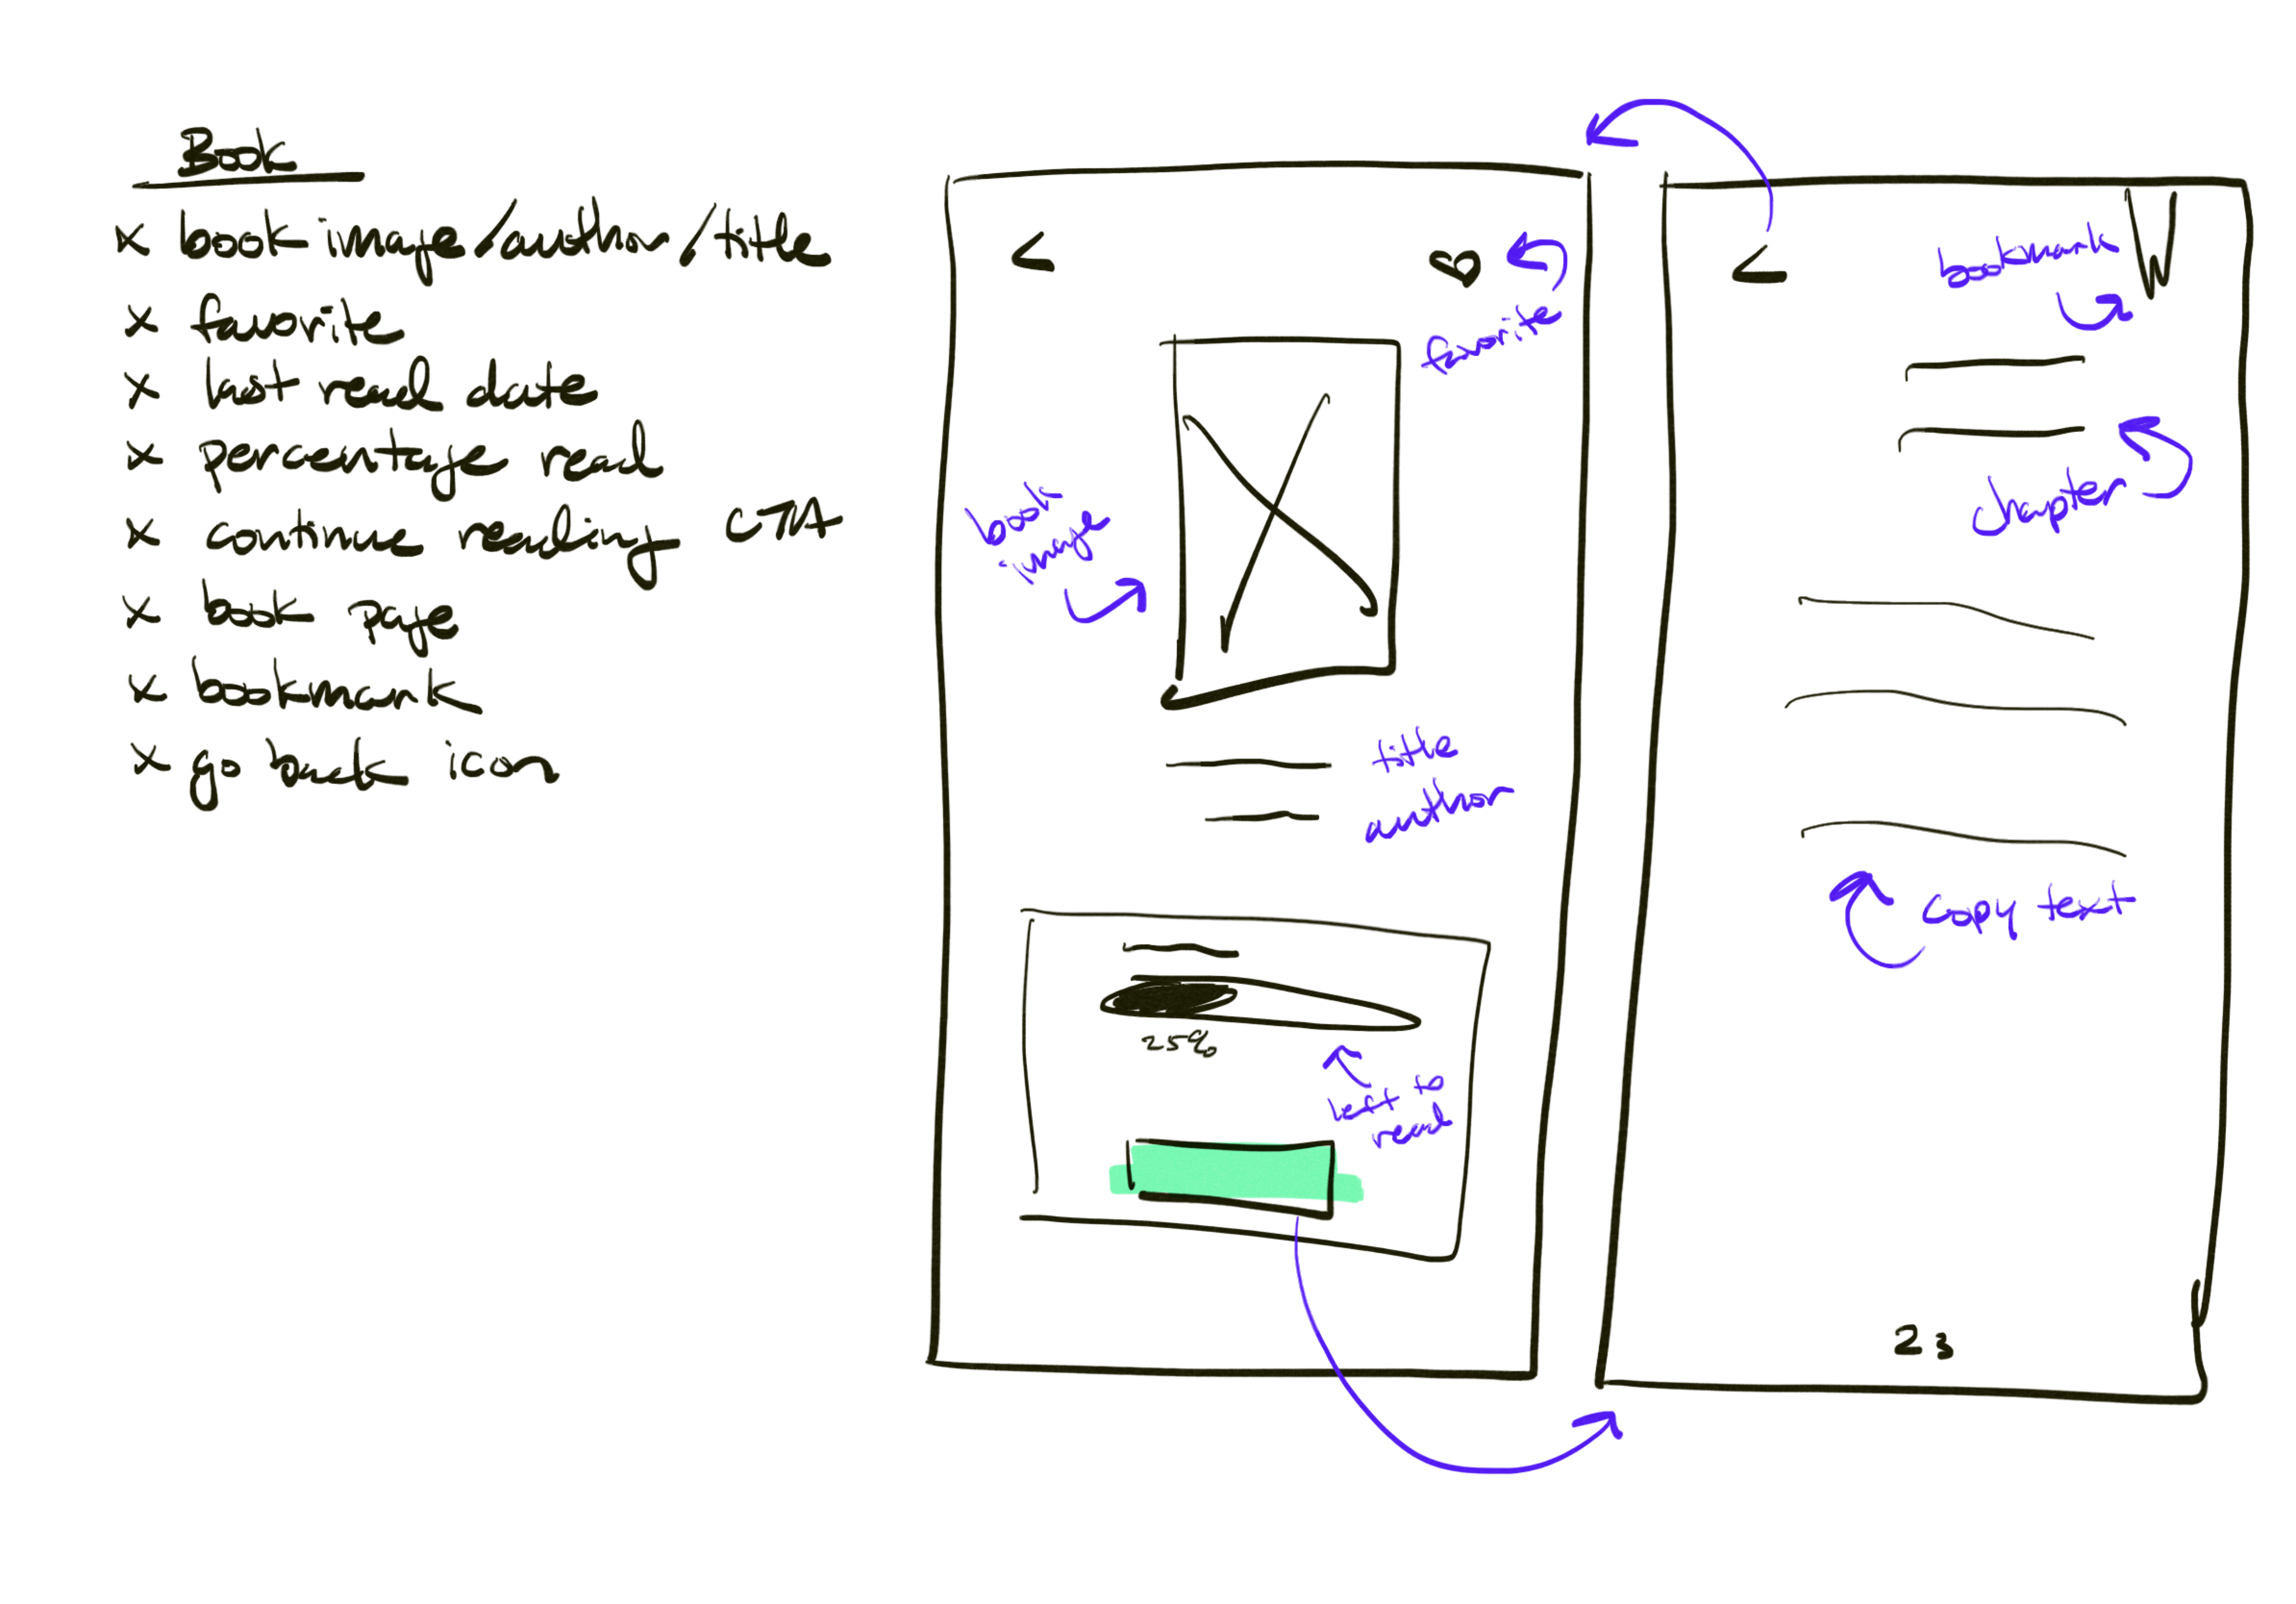 Book
x book image/author/title
x favorite
x last read date
x percentage read
x continue reading CTA
x book page
x bookmark
x go back icon
<
favorite
book
image
title
author
25%
left to
read
<
bookmark
chapter
copy text
23